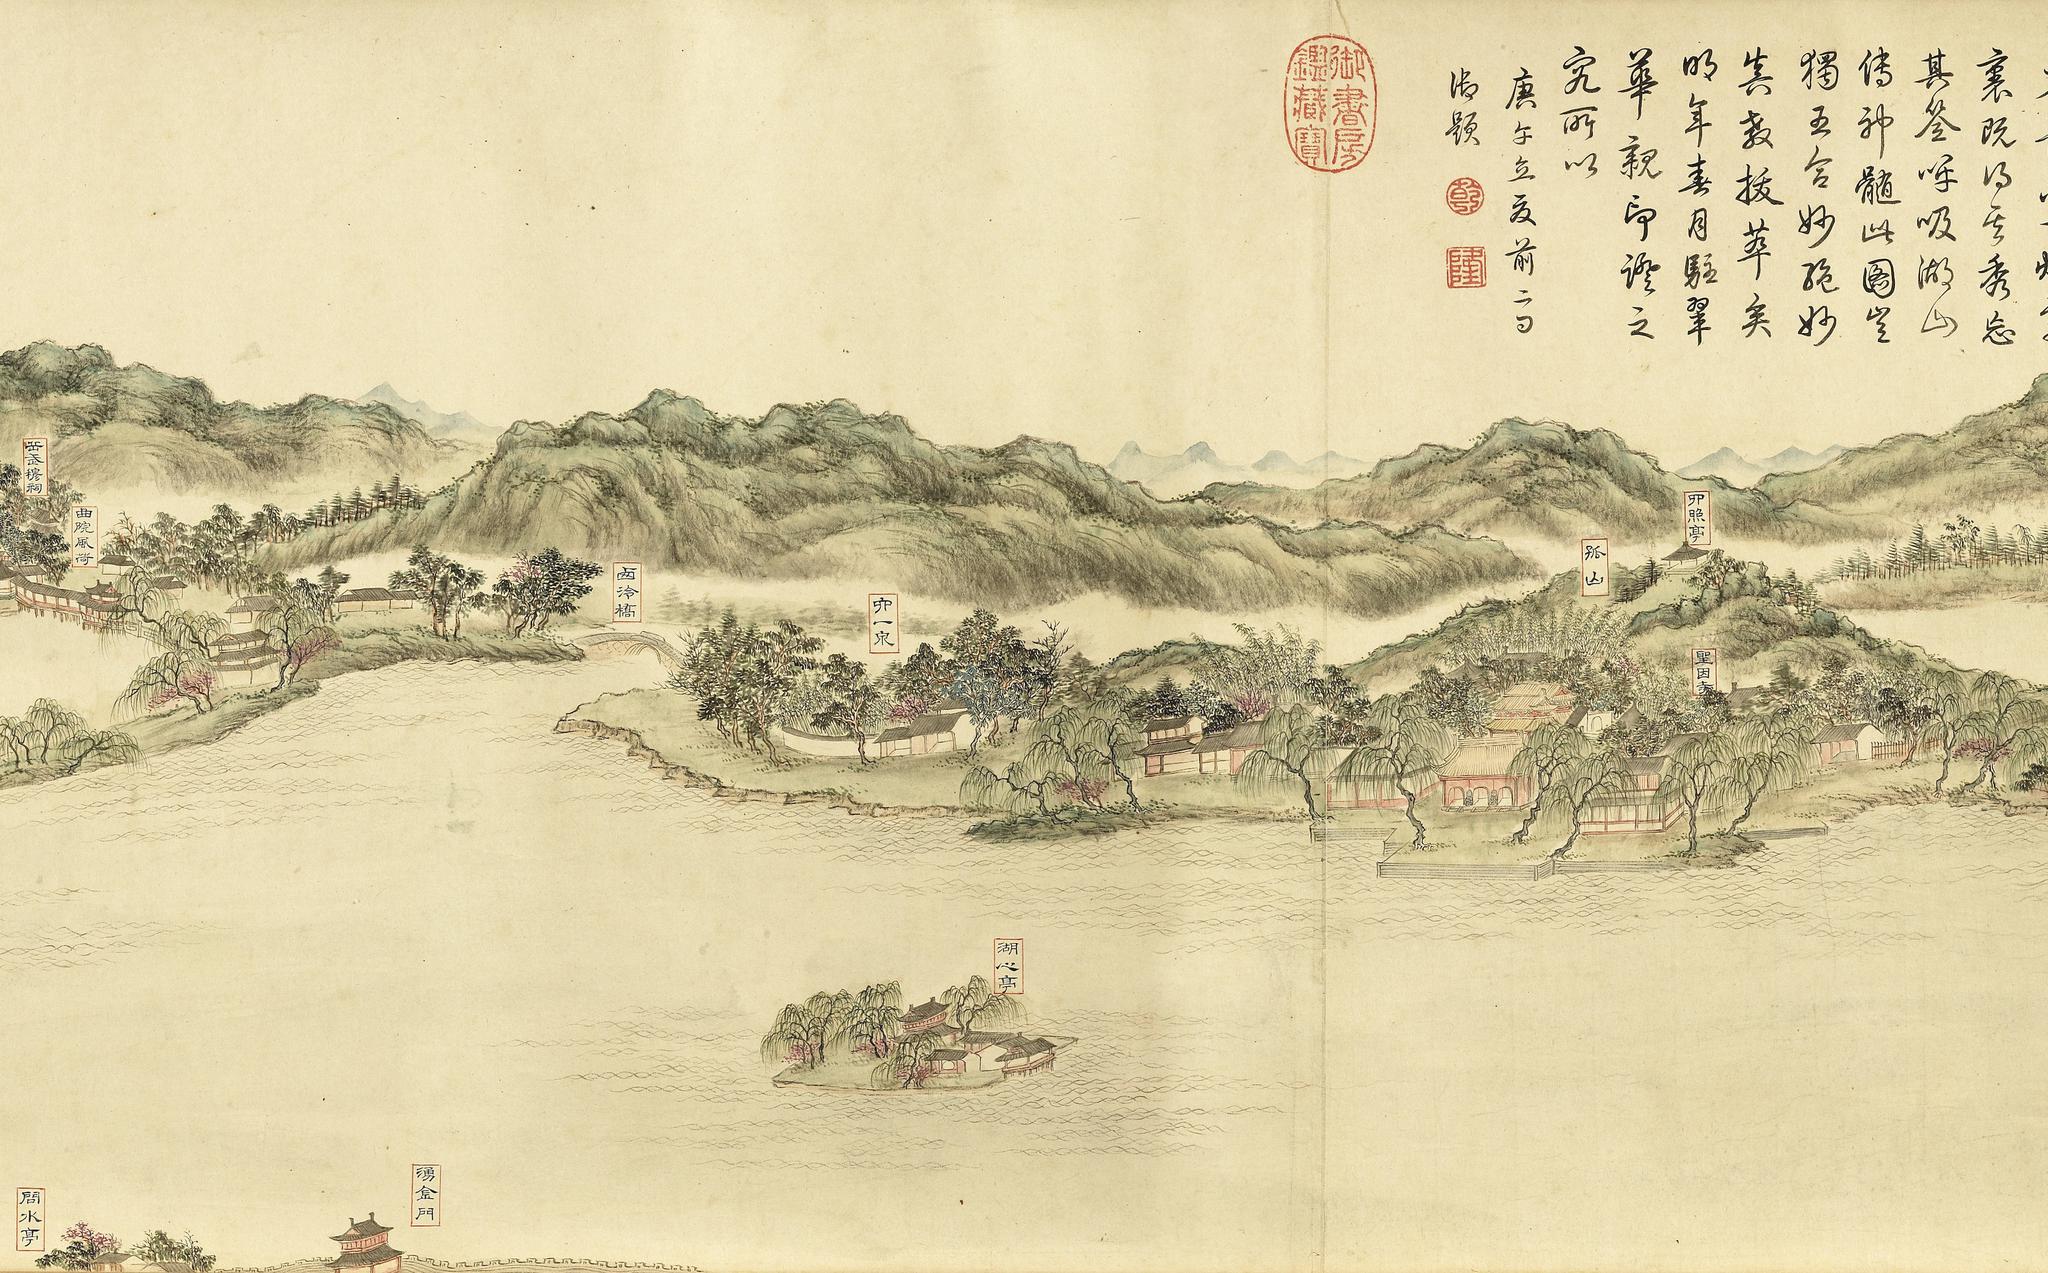 裏既得其秀忘
其筌呼吸湖山
傳神髓此圖豈
獨五合妙絕妙
真教拔萃矣
明年春月駐翠
華親印證之
究所以
庚午立夏前二日
御題
乾
隆
御書房
鑑藏寶
四照亭
孤山
聖因寺
六一泉
西泠橋
曲院風荷
岳武穆祠
湖心亭
湧金門
問水亭